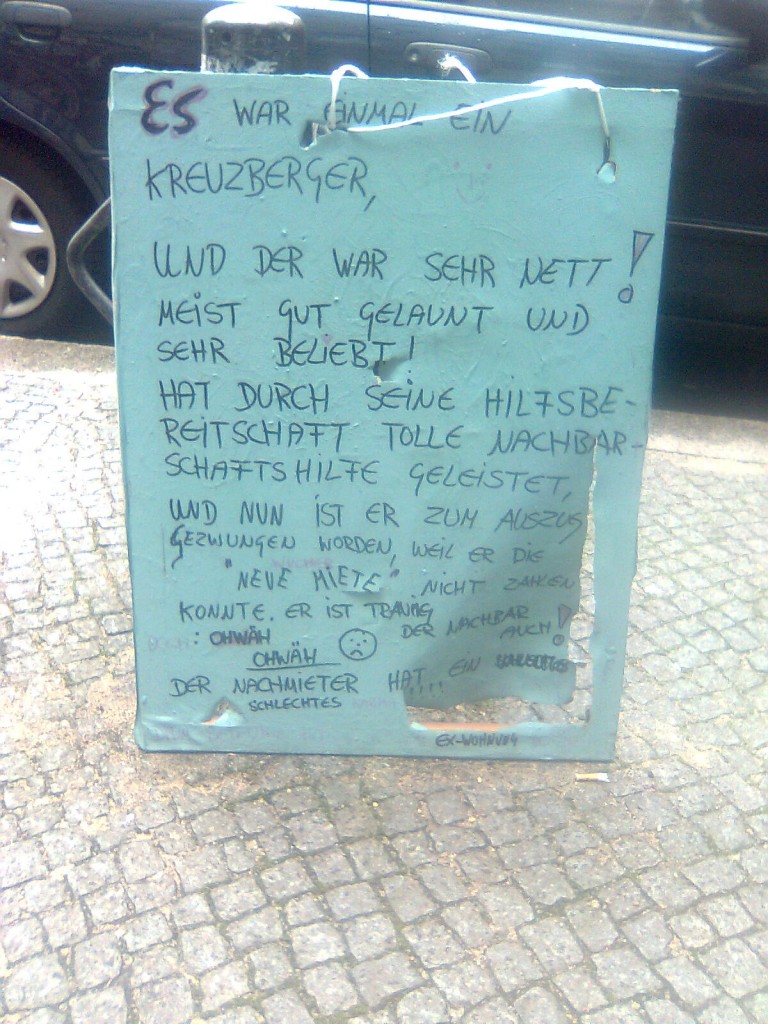 ES WAR EINMAL EIN
KREUZBERGER,
UND DER WAR SEHR NETT!
MEIST GUT GELAUNT UND
SEHR BELIEBT!
HAT DURCH SEINE HILFSBE-
REITSCHAFT TOLLE NACHBAR-
SCHAFTSHILFE GELEISTET,
UND NUN IST ER ZUM AUSZUG
GEZWUNGEN WORDEN, WEIL ER DIE
"NEUE MIETE" NICHT ZAHLEN
KONNTE. ER IST TRAURIG
DER NACHBAR AUCH!
: OHWÄH
OHWÄH
DER NACHMIETER HAT... EIN
SCHLECHTES
EX-WOHNUNG